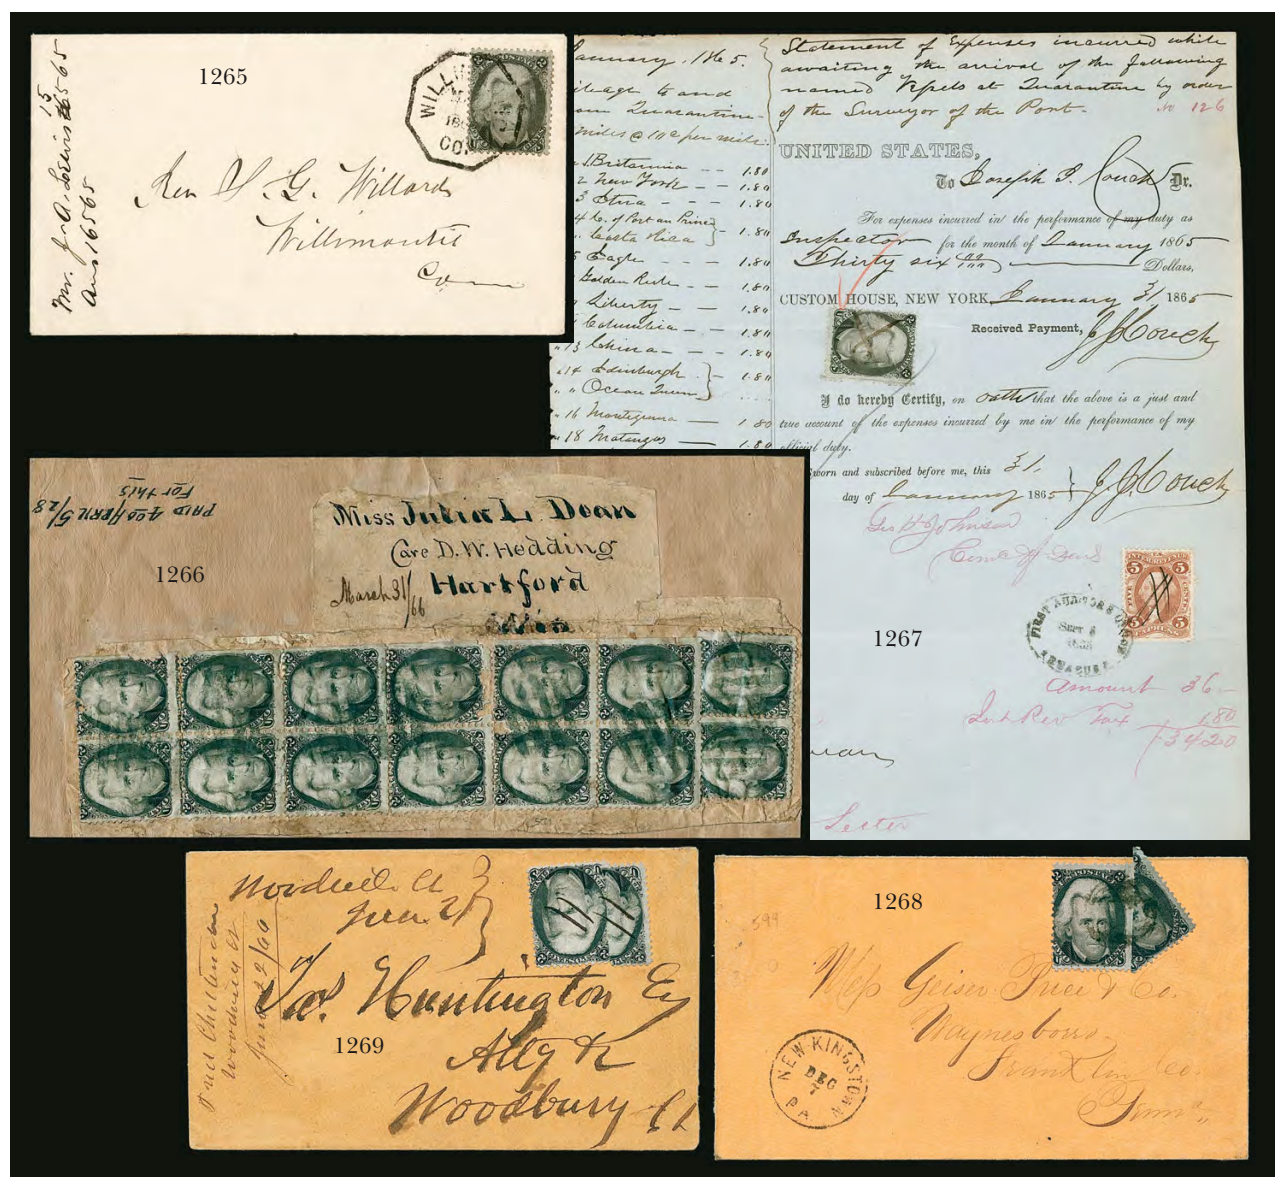 1265
Mr. J. A. Lewis
15
Aug 16 5 65
WILLI
CON
Rev S. G. Willard
Willimantic
Conn
January, 1865.
Mileage to and
from Quarantine
miles @ 10c per mile.
1 Britannia - - 1.80
2 New York - - 1.80
3 Etna - - - 1.80
4 C. of Port au Prince
" Costa Rica - 1.80
5 Eagle - - 1.80
Golden Rule - - 1.80
Liberty - - 1.80
Columbia - - 1.80
"13 China - - - 1.80
"14 Edinburgh - 1.80
" " Ocean Queen
"16 Montezuma - 1.80
"18 Matanzas - 1.80
Statement of Expenses incurred while
awaiting the arrival of the following
named Vessels at Quarantine by order
of the Surveyor of the Port.
No 126
UNITED STATES,
To Joseph J. Couch Dr.
For expenses incurred in the performance of my duty as
Inspector for the month of January 1865
Thirty six 00/100 Dollars,
CUSTOM HOUSE, NEW YORK, January 31 1865
Received Payment, J J Couch
I do hereby Certify, on oath that the above is a just and
true account of the expenses incurred by me in the performance of my
official duty.
Sworn and subscribed before me, this 31,
day of January 1865 J. J. Couch
Geo H Johnson
5 5
5 5
FIRST AUDITOR'S OFFICE
SEPT
TREASURY
1267
Amount 36 -
Int Rev Tax 1.80
34.20
Lester
PAID 400 HERN 5/28
For this
1266
Miss Julia L. Dean
Care D. W. Hedding
Hartford
March 31/66
Woodville Ct
June 21
Woodbury Ct
June 22/66
Jas. Huntington Esq
1269
Woodbury Ct
1268
599
U.S. POSTAGE
Mess Geiser Price & Co.
Waynesboro
Franklin Co.
Penna
NEW KINGSTOWN
DEC
7
PA